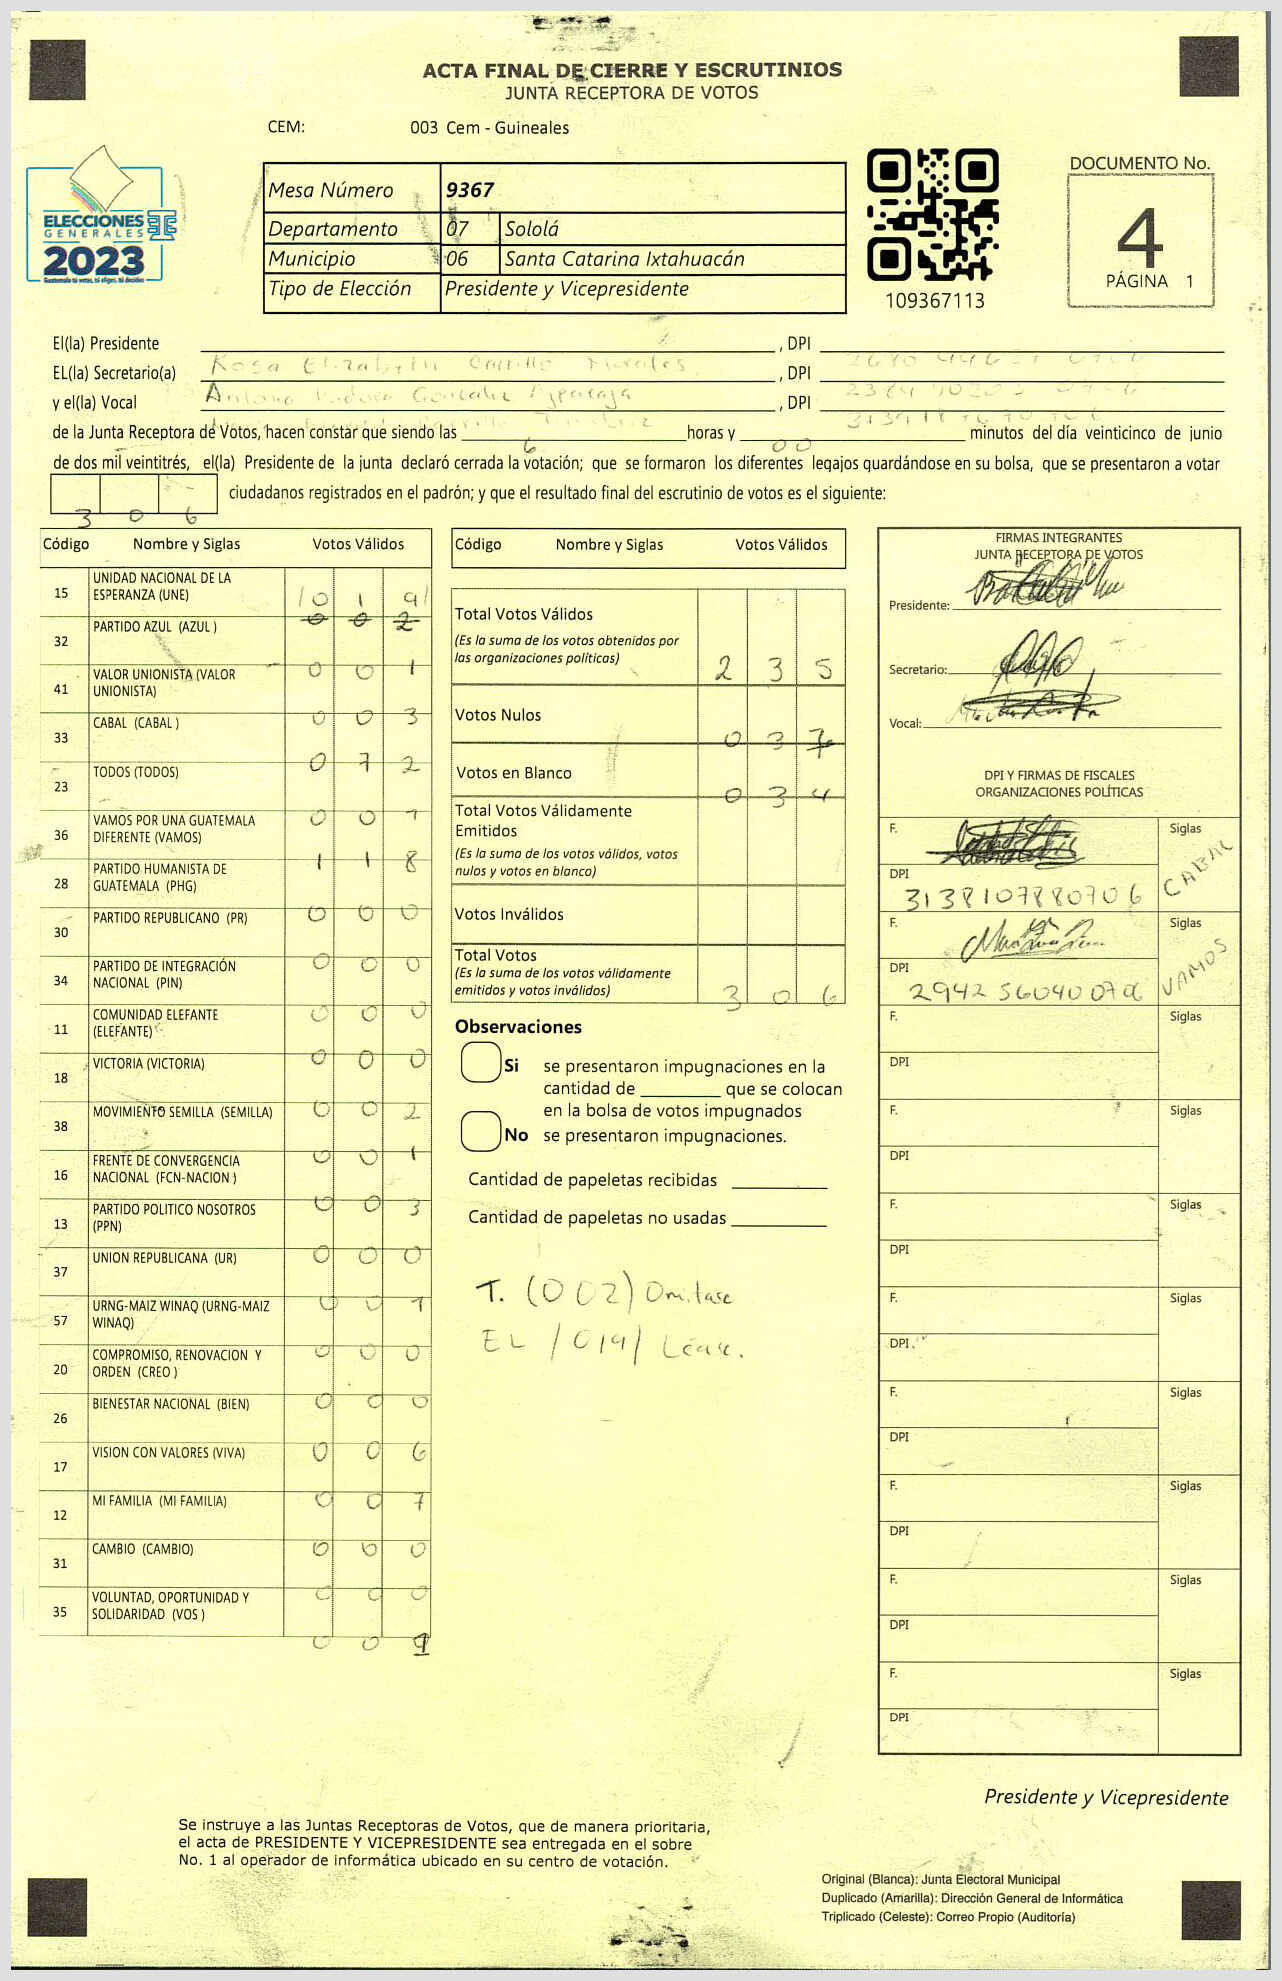 ACTA FINAL DE CIERRE Y ESCRUTINIOS
JUNTA RECEPTORA DE VOTOS
CEM: 003 Cem - Guineales
ELECCIONES
GENERALES
2023
Guatemala tú votas, tú eliges, tú decides
Mesa Número 9367
Departamento 07 Sololá
Municipio 06 Santa Catarina Ixtahuacán
Tipo de Elección Presidente y Vicepresidente
109367113
DOCUMENTO No.
4
PÁGINA 1
El(la) Presidente , DPI
Rosa Elizabeth Carrillo Morales
EL(la) Secretario(a) , DPI
Antonio Gonzalez
y el(la) Vocal , DPI
de la Junta Receptora de Votos, hacen constar que siendo las 6 horas y 00 minutos del día veinticinco de junio
de dos mil veintitrés, el(la) Presidente de la junta declaró cerrada la votación; que se formaron los diferentes legajos guardándose en su bolsa, que se presentaron a votar
306 ciudadanos registrados en el padrón; y que el resultado final del escrutinio de votos es el siguiente:
Código Nombre y Siglas Votos Válidos
15 UNIDAD NACIONAL DE LA ESPERANZA (UNE) /0 1 9/
0 0 2
32 PARTIDO AZUL (AZUL )
0 0 1
41 VALOR UNIONISTA (VALOR UNIONISTA)
0 0 3
33 CABAL (CABAL )
0 7 2
23 TODOS (TODOS)
0 0 7
36 VAMOS POR UNA GUATEMALA DIFERENTE (VAMOS)
1 1 8
28 PARTIDO HUMANISTA DE GUATEMALA (PHG)
0 0 0
30 PARTIDO REPUBLICANO (PR)
0 0 0
34 PARTIDO DE INTEGRACIÓN NACIONAL (PIN)
0 0 0
11 COMUNIDAD ELEFANTE (ELEFANTE)
0 0 0
18 VICTORIA (VICTORIA)
0 0 2
38 MOVIMIENTO SEMILLA (SEMILLA)
0 0 1
16 FRENTE DE CONVERGENCIA NACIONAL (FCN-NACION )
0 0 3
13 PARTIDO POLITICO NOSOTROS (PPN)
0 0 0
37 UNION REPUBLICANA (UR)
0 0 1
57 URNG-MAIZ WINAQ (URNG-MAIZ WINAQ)
0 0 0
20 COMPROMISO, RENOVACION Y ORDEN (CREO )
0 0 0
26 BIENESTAR NACIONAL (BIEN)
0 0 6
17 VISION CON VALORES (VIVA)
0 0 7
12 MI FAMILIA (MI FAMILIA)
0 0 0
31 CAMBIO (CAMBIO)
0 0 0
35 VOLUNTAD, OPORTUNIDAD Y SOLIDARIDAD (VOS )
0 0
Código Nombre y Siglas Votos Válidos
Total Votos Válidos
(Es la suma de los votos obtenidos por
las organizaciones políticas) 2 3 5
Votos Nulos
0 3 7
Votos en Blanco
0 3 4
Total Votos Válidamente
Emitidos
(Es la suma de los votos válidos, votos
nulos y votos en blanco)
Votos Inválidos
Total Votos
(Es la suma de los votos válidamente
emitidos y votos inválidos) 3 0 6
Observaciones
Si se presentaron impugnaciones en la
cantidad de ________ que se colocan
en la bolsa de votos impugnados
No se presentaron impugnaciones.
Cantidad de papeletas recibidas
Cantidad de papeletas no usadas
T. (002) Omitase
EL /019/ Léase.
FIRMAS INTEGRANTES
JUNTA RECEPTORA DE VOTOS
Presidente:
Secretario:
Vocal:
DPI Y FIRMAS DE FISCALES
ORGANIZACIONES POLÍTICAS
F. Siglas
DPI CABAL
3138107880706
F. Siglas
DPI VAMOS
2942 56040 0706
F. Siglas
DPI
F. Siglas
DPI
F. Siglas
DPI
F. Siglas
DPI
F. Siglas
DPI
F. Siglas
DPI
F. Siglas
DPI
F. Siglas
DPI
Presidente y Vicepresidente
Se instruye a las Juntas Receptoras de Votos, que de manera prioritaria,
el acta de PRESIDENTE Y VICEPRESIDENTE sea entregada en el sobre
No. 1 al operador de informática ubicado en su centro de votación.
Original (Blanca): Junta Electoral Municipal
Duplicado (Amarilla): Dirección General de Informática
Triplicado (Celeste): Correo Propio (Auditoría)